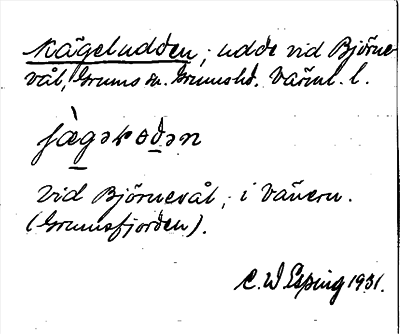 Kägeludden; udde vid Björne-
vål, Grums sn. Grums hd. Värml. l.
vid Björnevål, i Vänern.
(Grumsfjorden).
C. W Esping 1931.